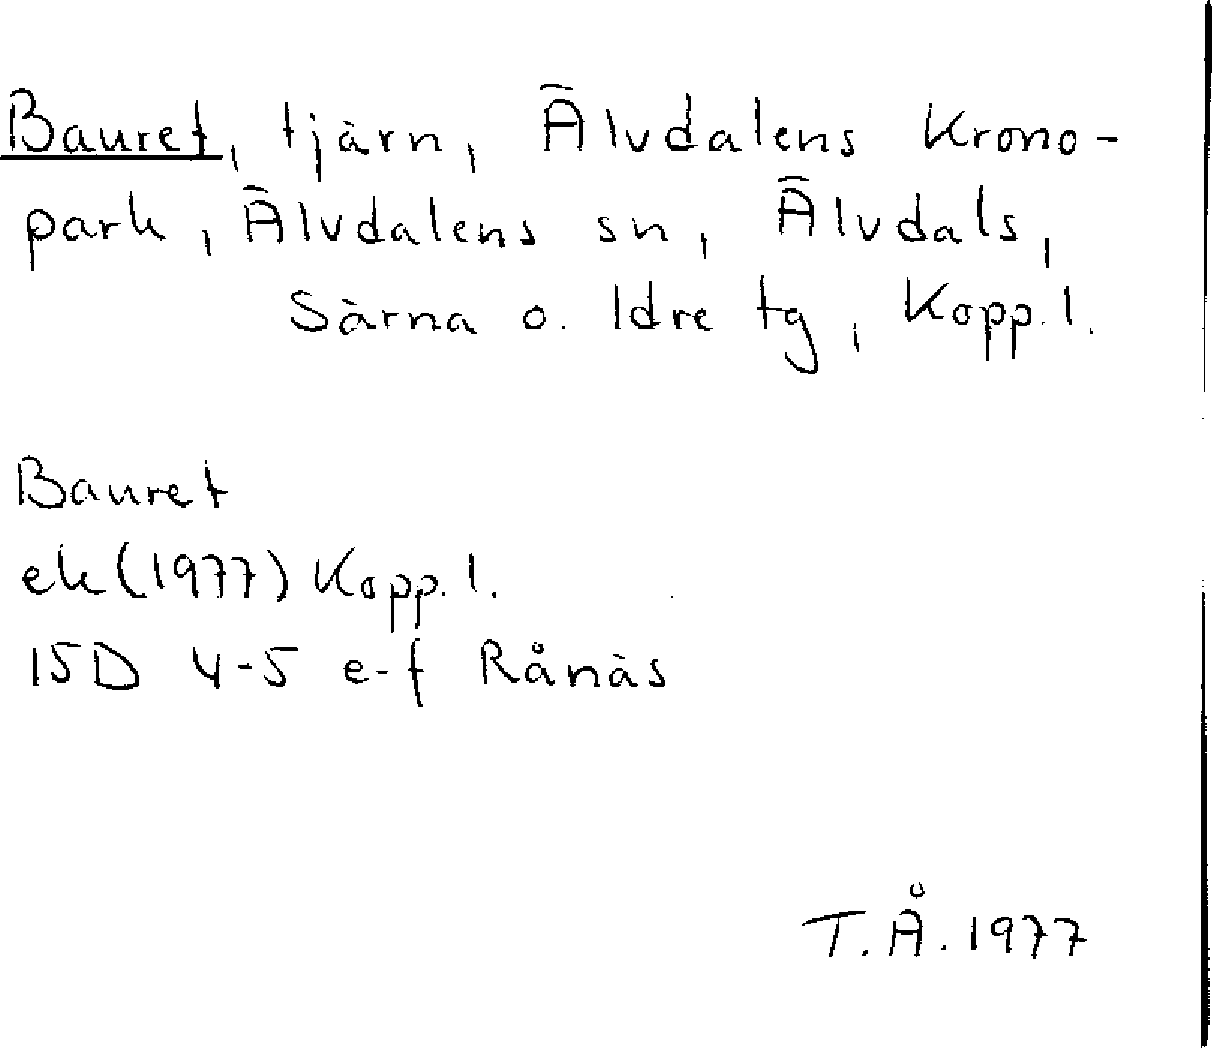 Bauret, tjärn, Älvdalens Krono-
park, Älvdalens sn, Älvdals,
Särna o. Idre tg, Kopp. l.
Bauret
ek (1977) Kopp. l.
15D 4-5 e-f Rånäs
T.Å. 1977